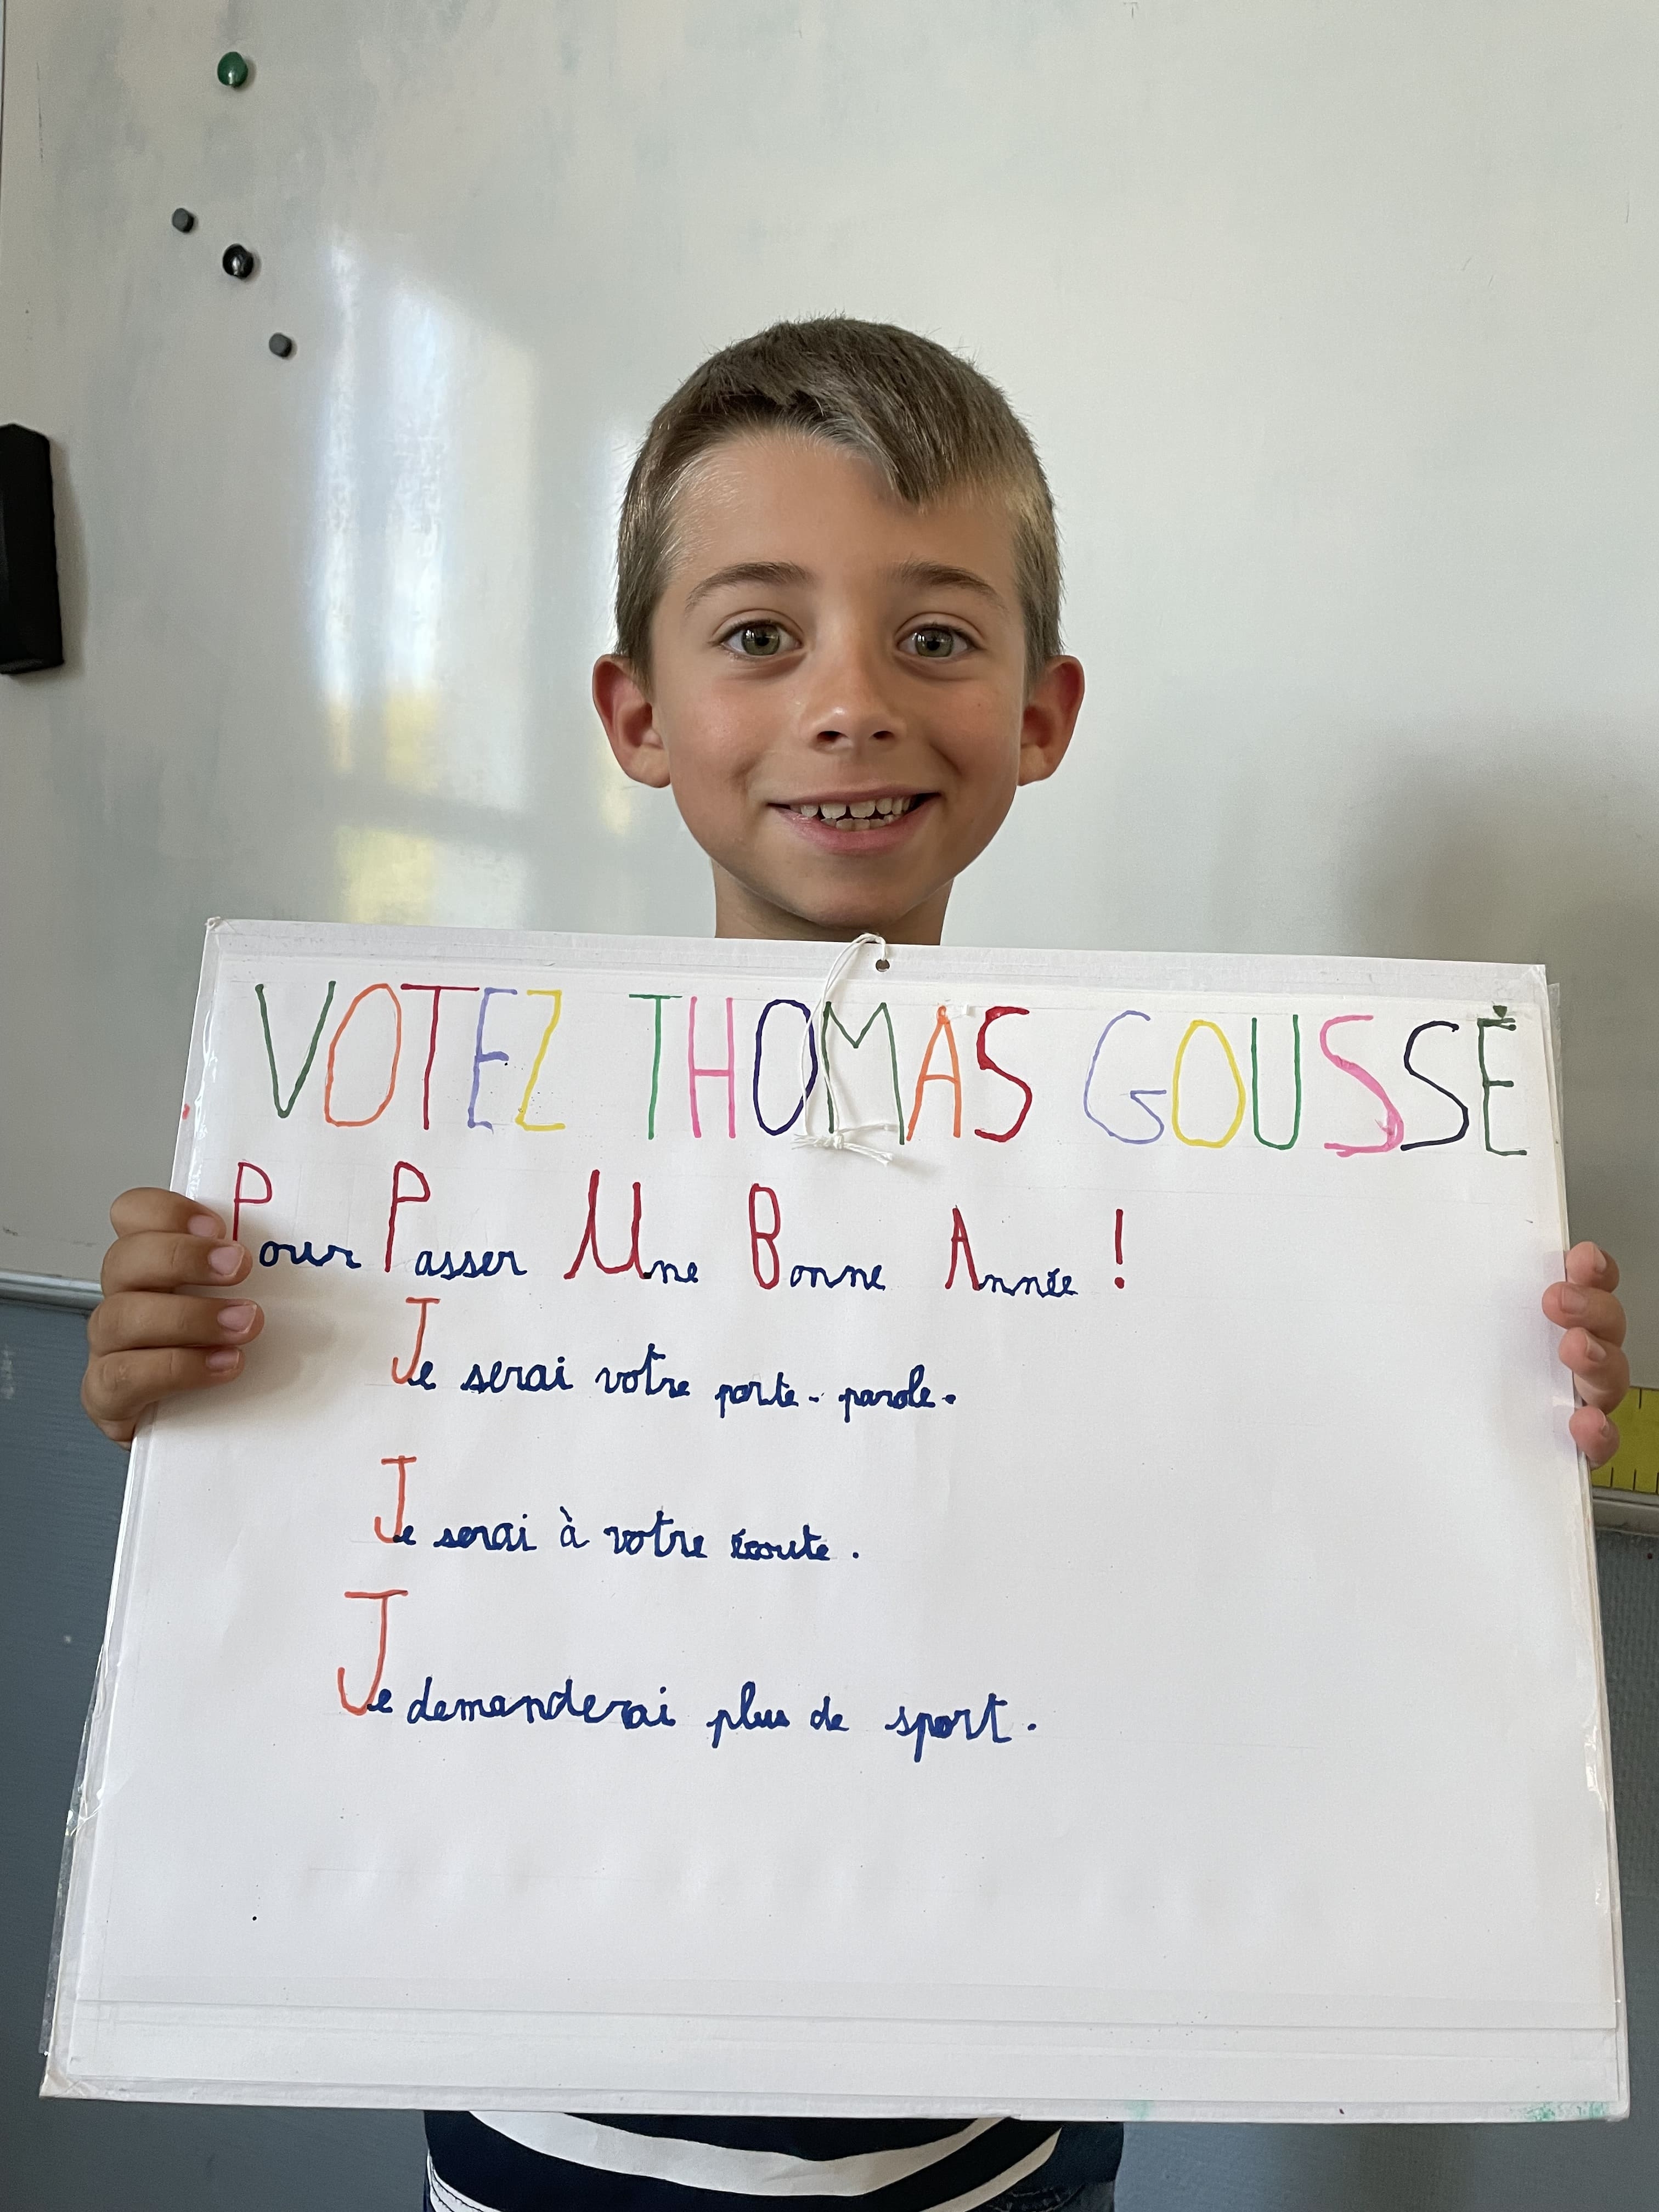 VOTEZ THOMAS GOUSSÉ
Pour Passer Une Bonne Année !
Je serai votre porte-parole.
Je serai à votre écoute.
Je demanderai plus de sport.